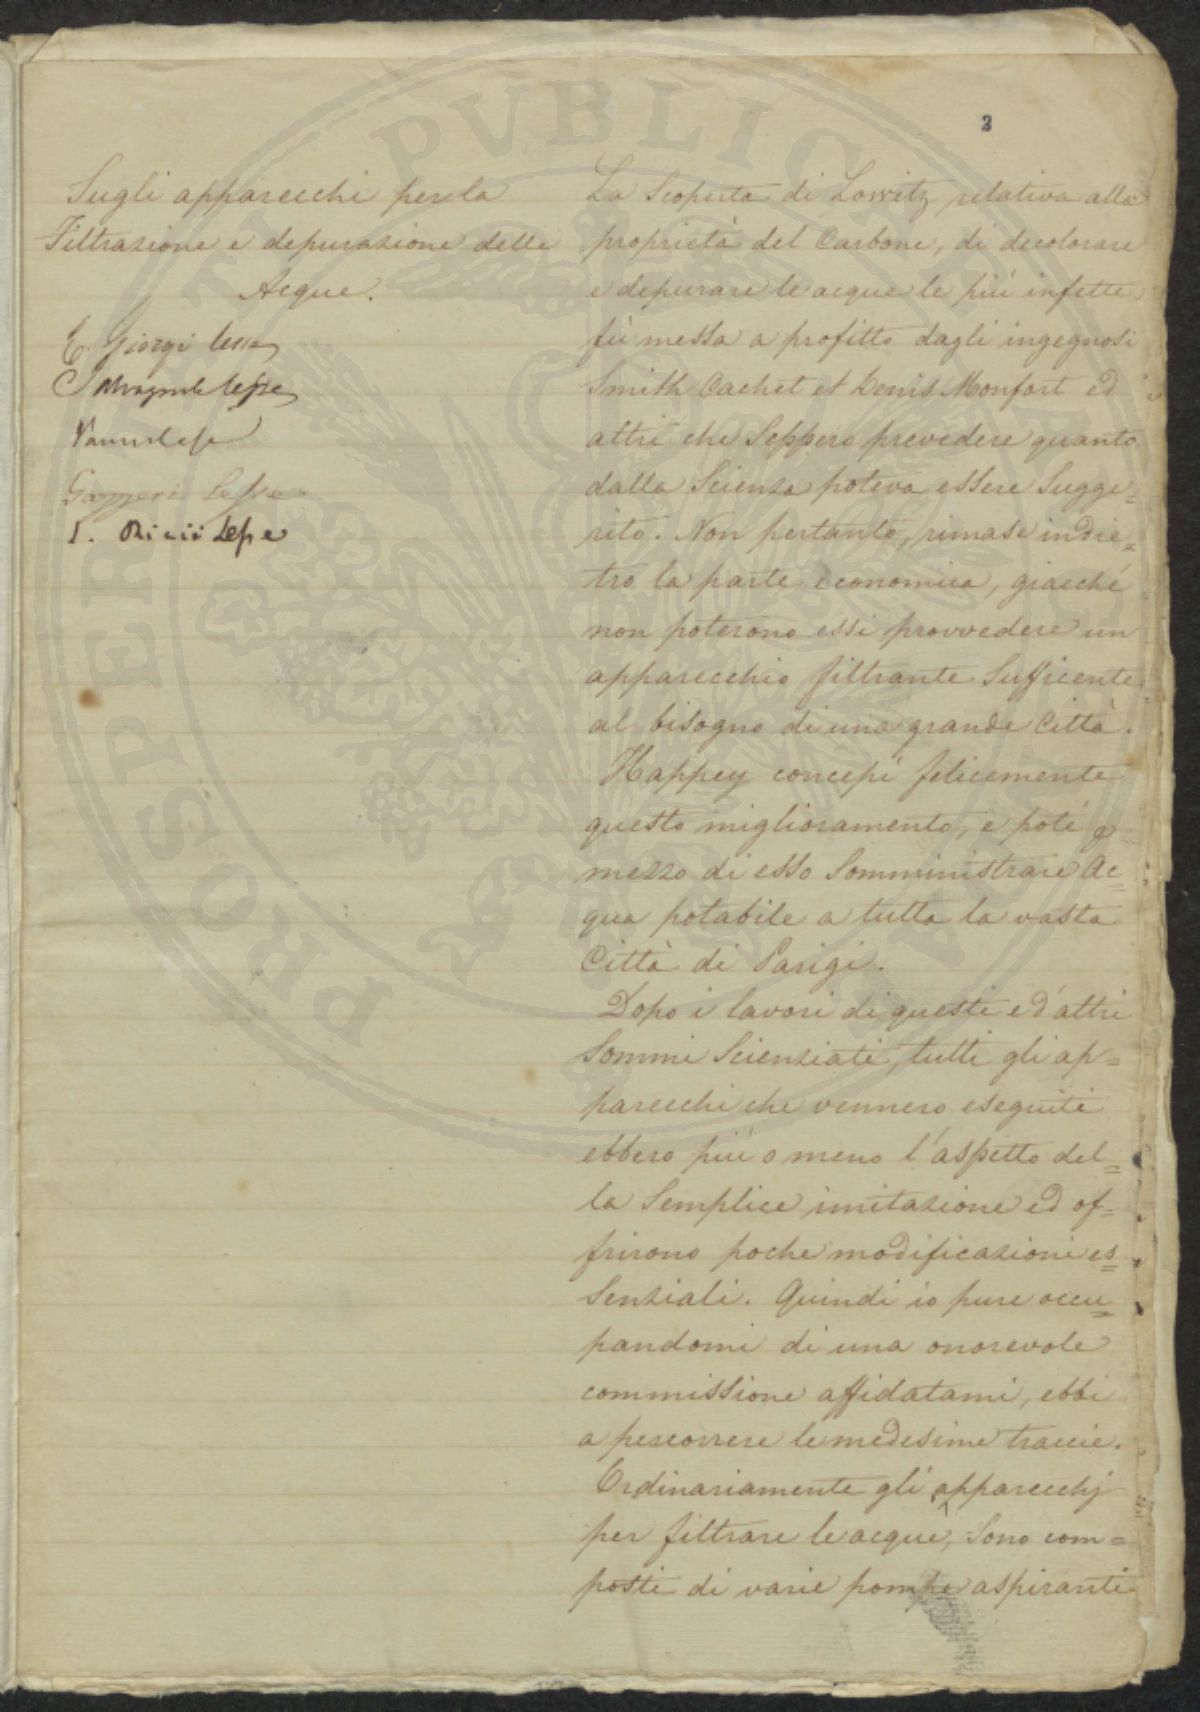 2
Sugli apparecchi per la
Filtrazione e depurazione delle
Acque.
E. Giorgi lesse
lesse
Gazzeri Lesse
lesse
La Scoperta di Lowitz relativa alla
proprietà del Carbone, di decolorare
e depurare le acque le più infette,
fù messa a profitto dagli ingegnosi
Smith Cachet et Denis Monfort ed
altri che Seppero prevedere quanto
dalla Scienza poteva essere Sugge=
rito. Non pertanto, rimase indie=
tro la parte economica, giacché
non poterono essi provvedere un
apparecchio filtrante Sufficente
al bisogno di una grande Città.
Happey concepì felicemente
questo miglioramento, e potè p
mezzo di esso Somministrare Ac=
qua potabile a tutta la vasta
Città di Parigi.
Dopo i lavori di questi ed'altri
Sommi Scienziati, tutti gli ap=
parecchi che vennero eseguiti
ebbero più o meno l'aspetto del=
la Semplice imitazione ed of=
frirono poche modificazioni es=
Senziali. Quindi io pure occu=
pandomi di una onorevole
commissione affidatami, ebbi
a percorrere le medesime traccie.
Ordinariamente gli apparecchj
per filtrare le acque, Sono com=
posti di varie pompe aspiranti
PVBLICAE
PROSPERITATI